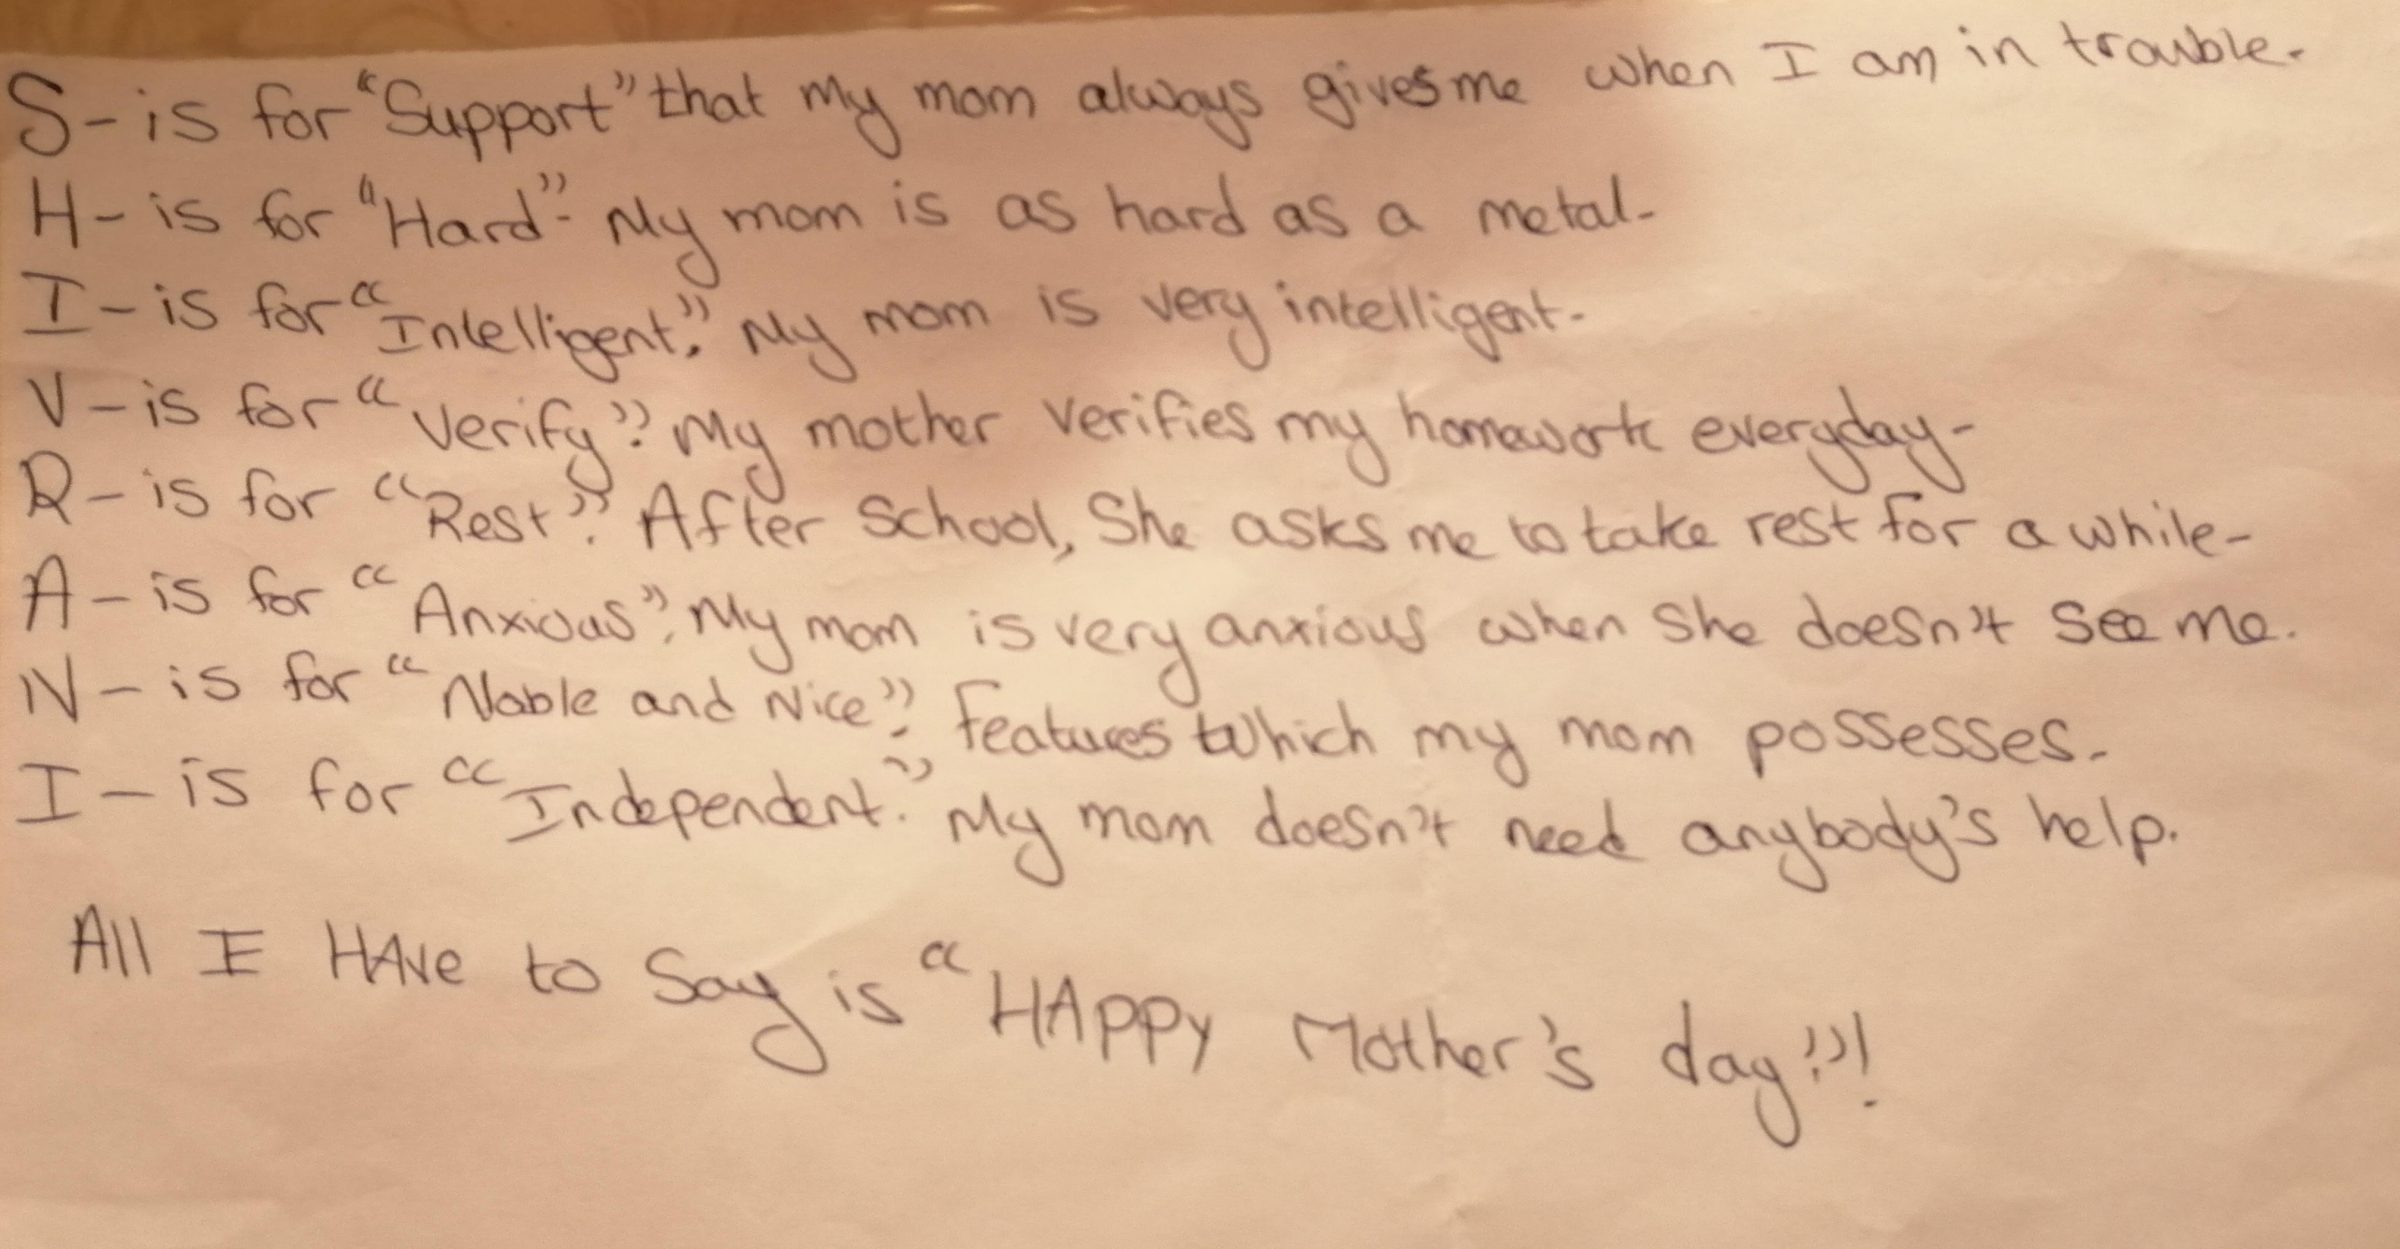 S-is for "Support" that my mom always gives me when I am in trouble.
H- is for "Hard". My mom is as hard as a metal.
I-is for "Intelligent." My mom is very intelligent.
V-is for "Verify". My mother verifies my homework everyday.
R-is for "Rest". After School, She asks me to take rest for a while.
A-is for "Anxious". My mom is very anxious when She doesn't See me.
N-is for "Noble and Nice". Features Which my mom possesses.
I-is for "Independent." My mom doesn't need anybody's help.
All I HAve to Say is "HAppy Mother's day!"!